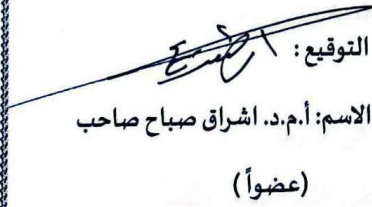 التوقيع :
الاسم: أ.م.د. اشراق صباح صاحب
(عضواً)